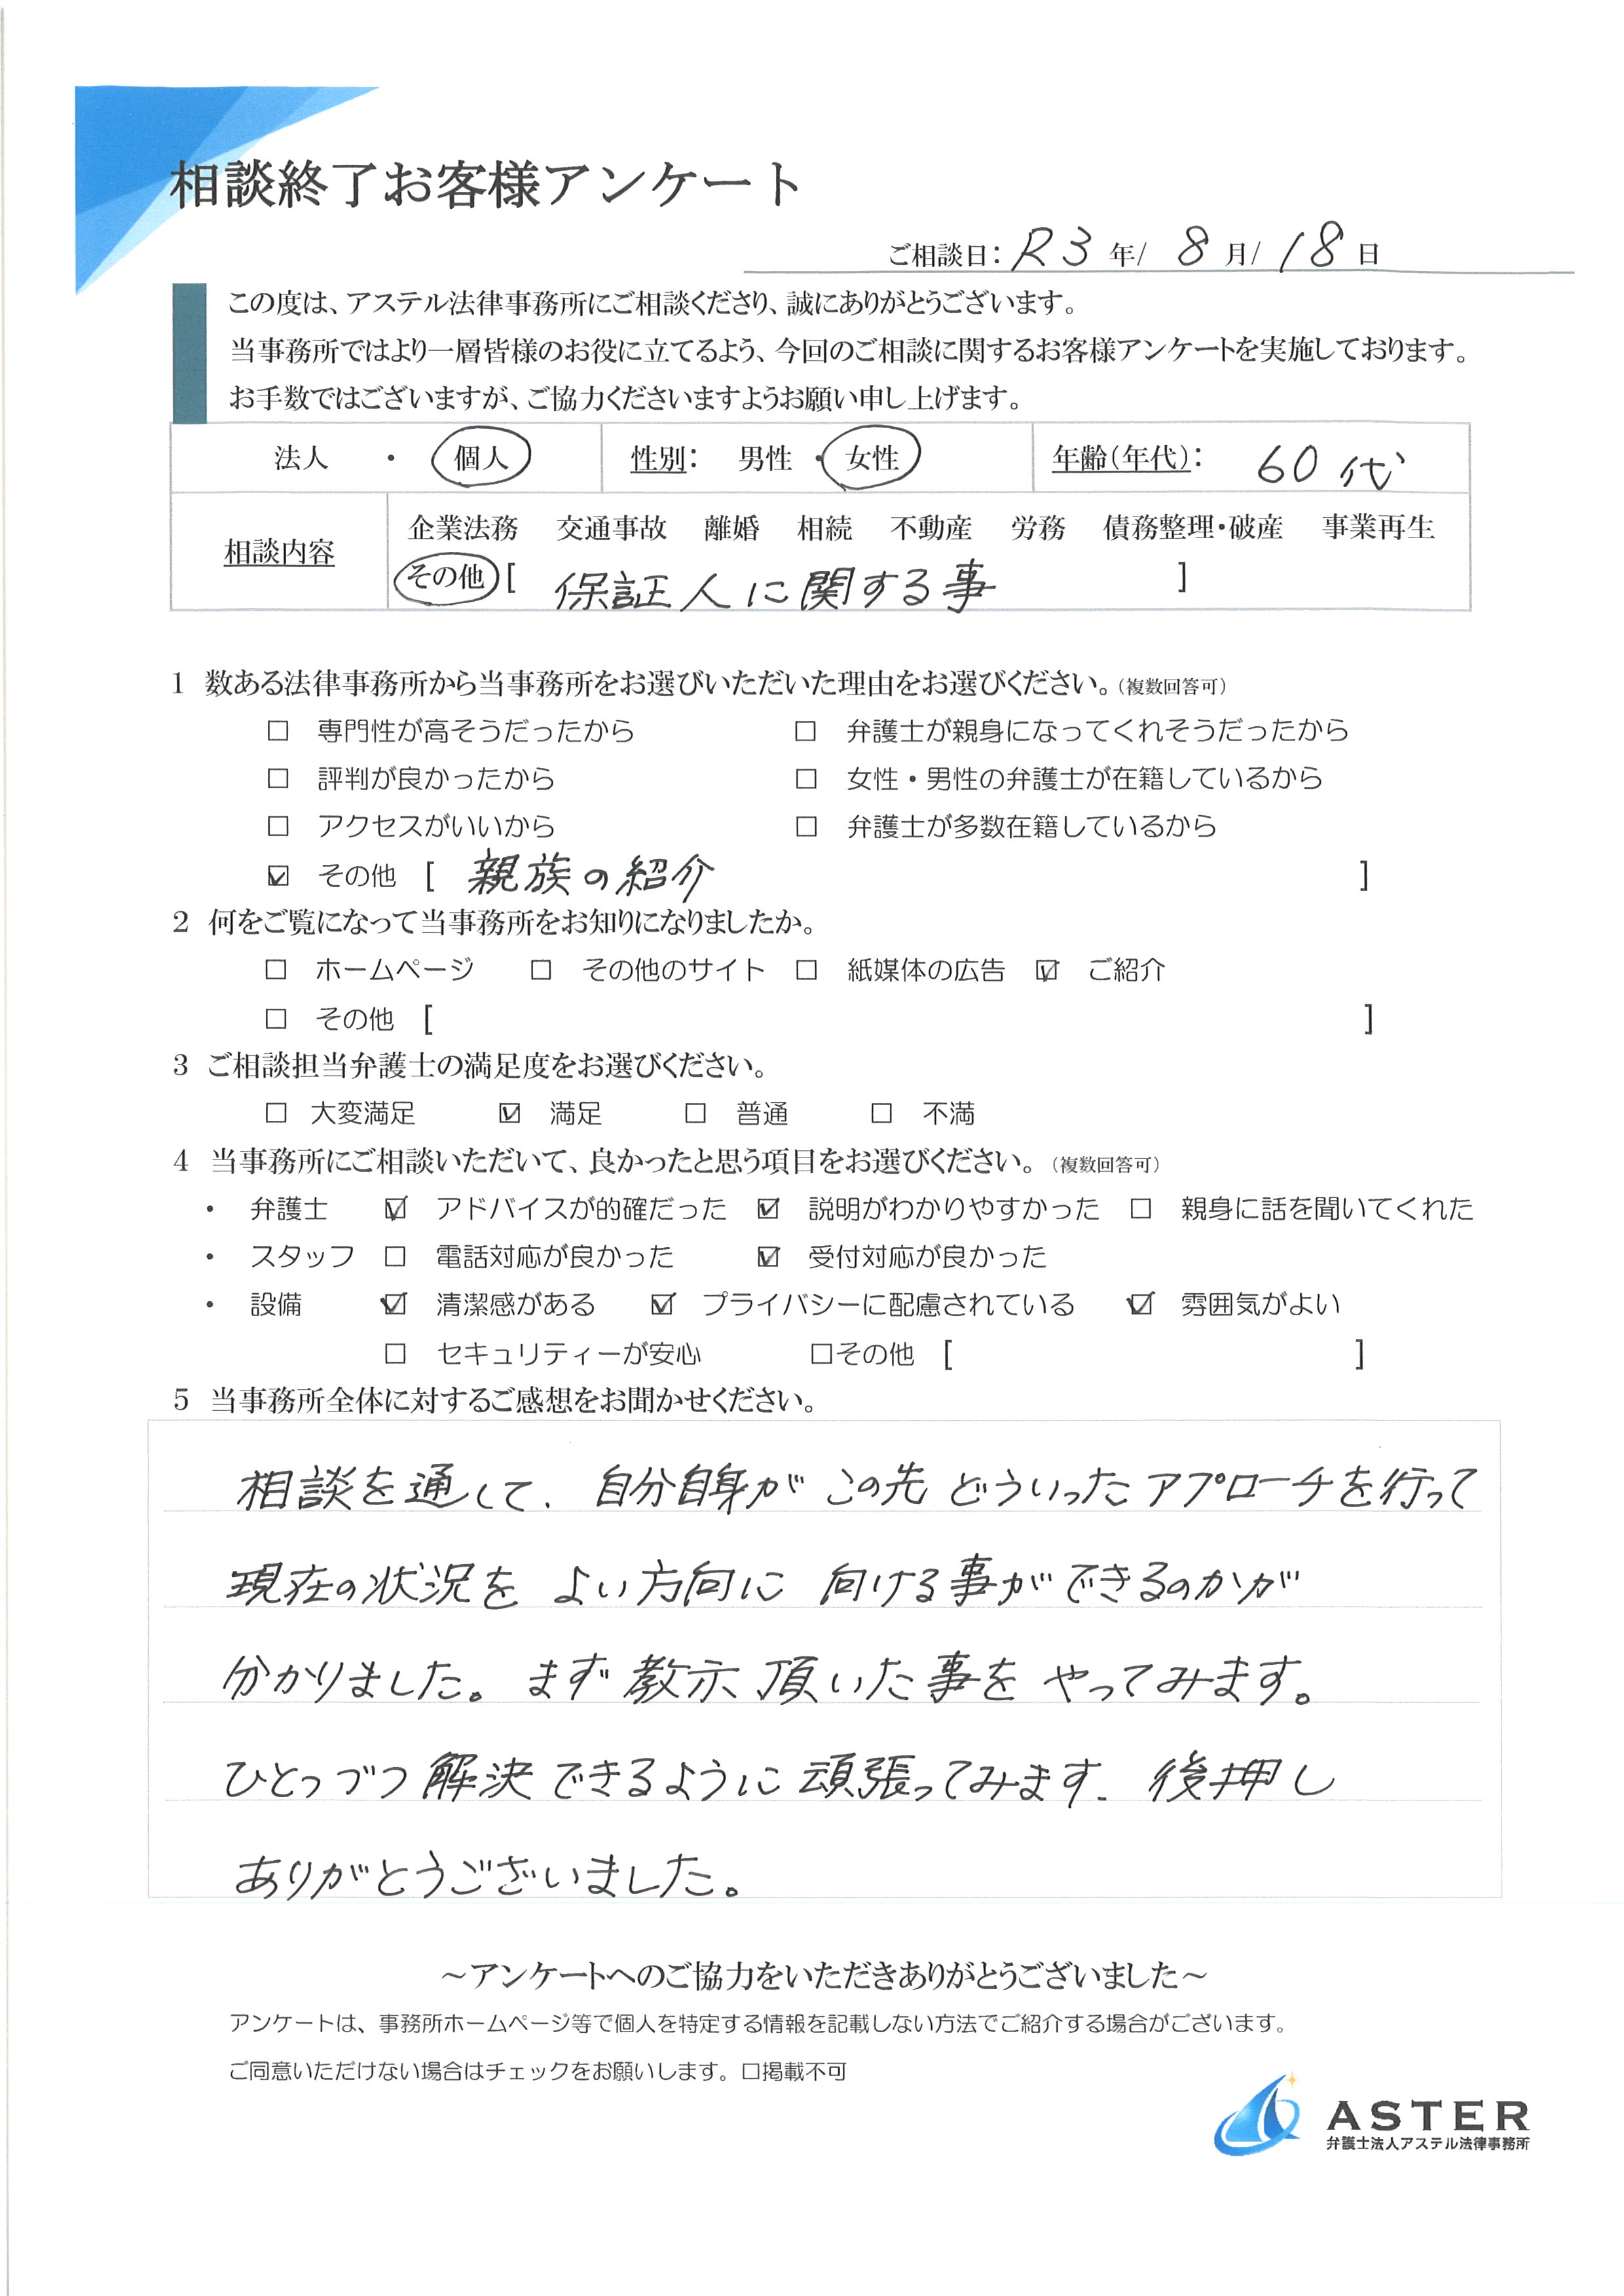 相談終了お客様アンケート
ご相談日: R3 年/ 8 月/ 18 日
この度は、アステル法律事務所にご相談くださり、誠にありがとうございます。
当事務所ではより一層皆様のお役に立てるよう、今回のご相談に関するお客様アンケートを実施しております。
お手数ではございますが、ご協力くださいますようお願い申し上げます。
法人 ・ 個人 性別: 男性 ・ 女性 年齢(年代): 60代
相談内容 企業法務 交通事故 離婚 相続 不動産 労務 債務整理・破産 事業再生
その他 [ 保証人に関する事 ]
1 数ある法律事務所から当事務所をお選びいただいた理由をお選びください。(複数回答可)
□ 専門性が高そうだったから □ 弁護士が親身になってくれそうだったから
□ 評判が良かったから □ 女性・男性の弁護士が在籍しているから
□ アクセスがいいから □ 弁護士が多数在籍しているから
☑ その他 [ 親族の紹介 ]
2 何をご覧になって当事務所をお知りになりましたか。
□ ホームページ □ その他のサイト □ 紙媒体の広告 ☑ ご紹介
□ その他 [ ]
3 ご相談担当弁護士の満足度をお選びください。
□ 大変満足 ☑ 満足 □ 普通 □ 不満
4 当事務所にご相談いただいて、良かったと思う項目をお選びください。(複数回答可)
・ 弁護士 ☑ アドバイスが的確だった ☑ 説明がわかりやすかった □ 親身に話を聞いてくれた
・ スタッフ □ 電話対応が良かった ☑ 受付対応が良かった
・ 設備 ☑ 清潔感がある ☑ プライバシーに配慮されている ☑ 雰囲気がよい
□ セキュリティーが安心 □その他 [ ]
5 当事務所全体に対するご感想をお聞かせください。
相談を通して、自分自身が この先 どういったアプローチを行って
現在の状況を よい方向に 向ける事ができるのかが
分かりました。まず 教示 頂いた事を やってみます。
ひとつづつ 解決できるように 頑張ってみます. 後押し
ありがとうございました。
～アンケートへのご協力をいただきありがとうございました～
アンケートは、事務所ホームページ等で個人を特定する情報を記載しない方法でご紹介する場合がございます。
ご同意いただけない場合はチェックをお願いします。□掲載不可
ASTER
弁護士法人アステル法律事務所